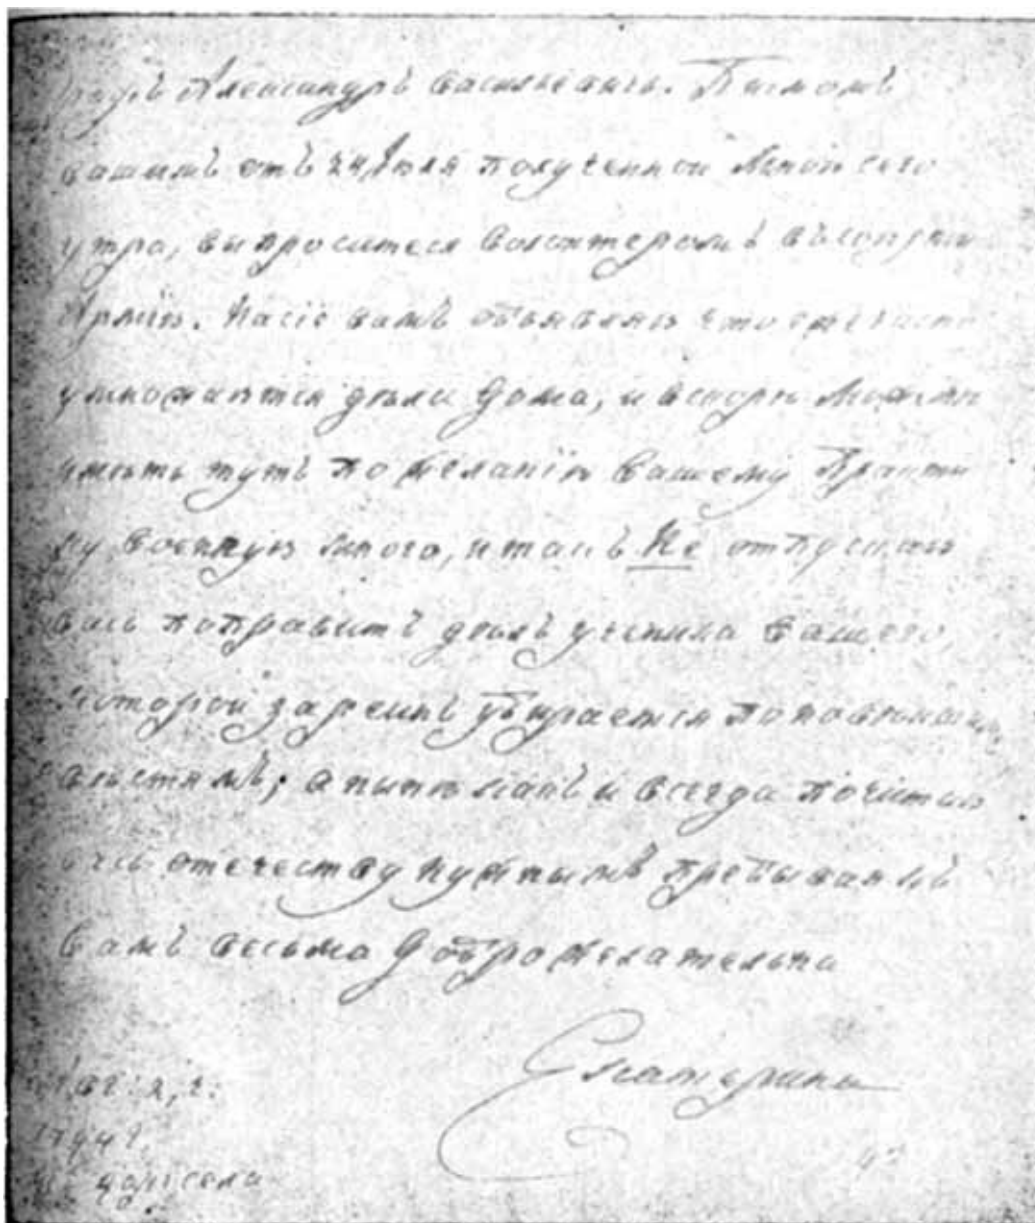 Графъ Александръ Васильевичь. Письмомъ
вашимъ отъ 24 Июля полученной Мною сего
утра, вы проситеся волонтеромъ въ союзныя
Армїи. На сїе вамъ объявляю что ежечасно
умножаются дѣла дома, и вскорѣ можете
имѣть тутъ по желанїю вашему практи
ку военную много, итакъ Не отпускаю
васъ поправить дѣлъ ученика вашего,
которой за реинъ убирается по новѣишимъ
вѣстямъ; а нынѣ какъ и всегда почитаю
васъ отечеству нужнымъ пребывая къ
вамъ весьма доброжелательна
Екатерина
1794 г.